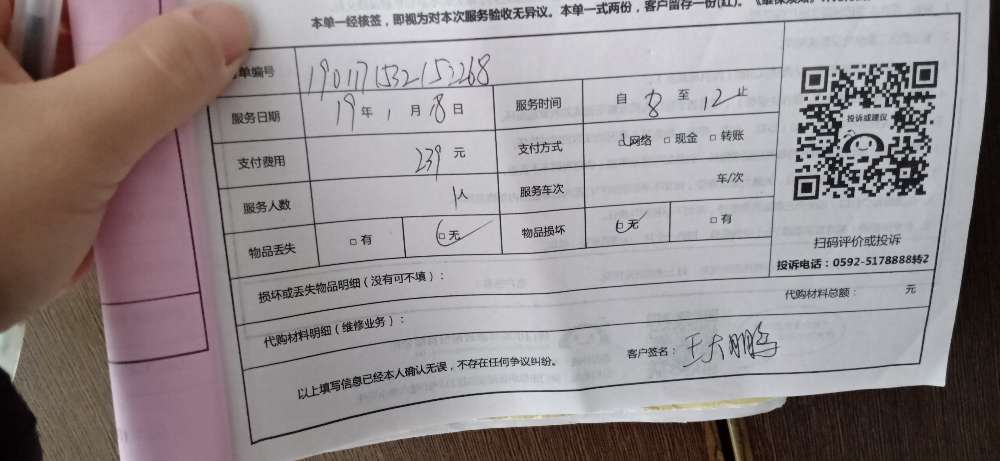 本单一经核签，即视为对本次服务验收无异议。本单一式两份，客户留存一份(红)。
单编号 190117153215​2268
服务日期 19 年 1 月 18 日 服务时间 自 8 至 12 止
支付费用 239 元 支付方式 □网络 □现金 □转账
服务人数 1人 服务车次 车/次
物品丢失 □有 □无 物品损坏 □无 □有
投诉或建议
扫码评价或投诉
投诉电话：0592-5178888转2
损坏或丢失物品明细（没有可不填）：
代购材料明细（维修业务）： 代购材料总额： 元
以上填写信息已经本人确认无误，不存在任何争议纠纷。 客户签名： 王大鹏